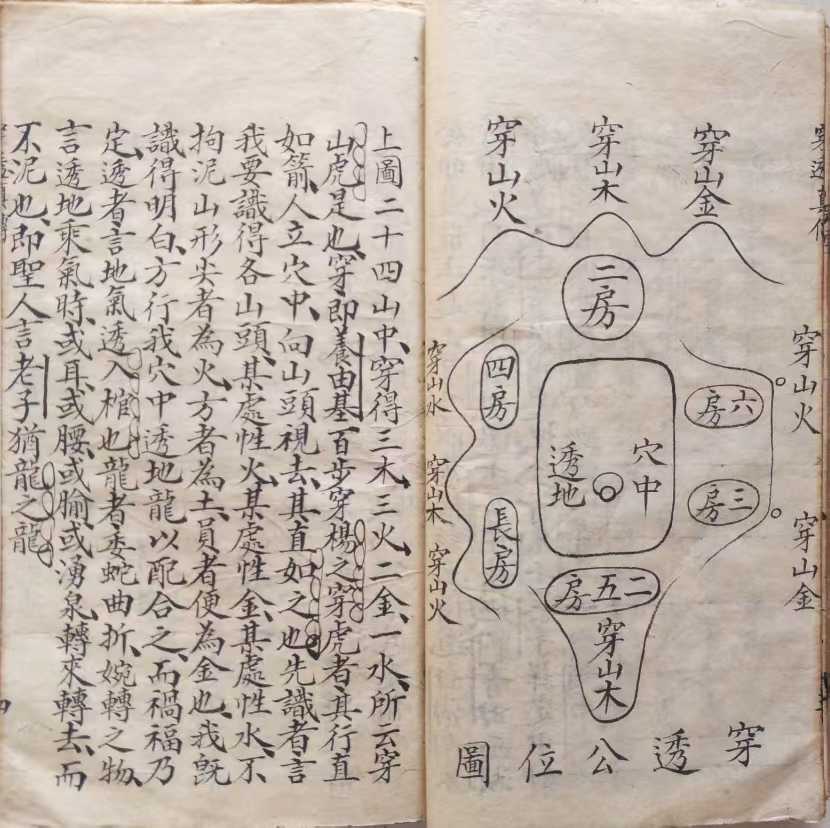 穿山金
穿山木
穿山火
二房
穿山火
穿山金
六房
三房
穴中
透地
四房
長房
穿山水
穿山木
穿山火
二五房
穿山木
穿透公位圖
上圖二十四山中、穿得三木、三火、二金、一水、所云穿
山虎是也、穿、即養由基百步穿楊之穿虎者、其行直
如箭、人立穴中、向山頭視去、其直如之也、先識者言
我要識得各山頭、某處性火、某處性金、某處性水、不
拘泥山形尖者為火、方者為土、員者便為金也、我既
識得明白、方行我穴中透地龍以配合之、而禍福乃
定、透者言地氣透入棺也、龍者委蛇曲折、婉轉之物、
言透地乘氣時、或耳、或腰、或腧、或湧泉、轉來轉去、而
不泥也、即聖人言老子猶龍之龍